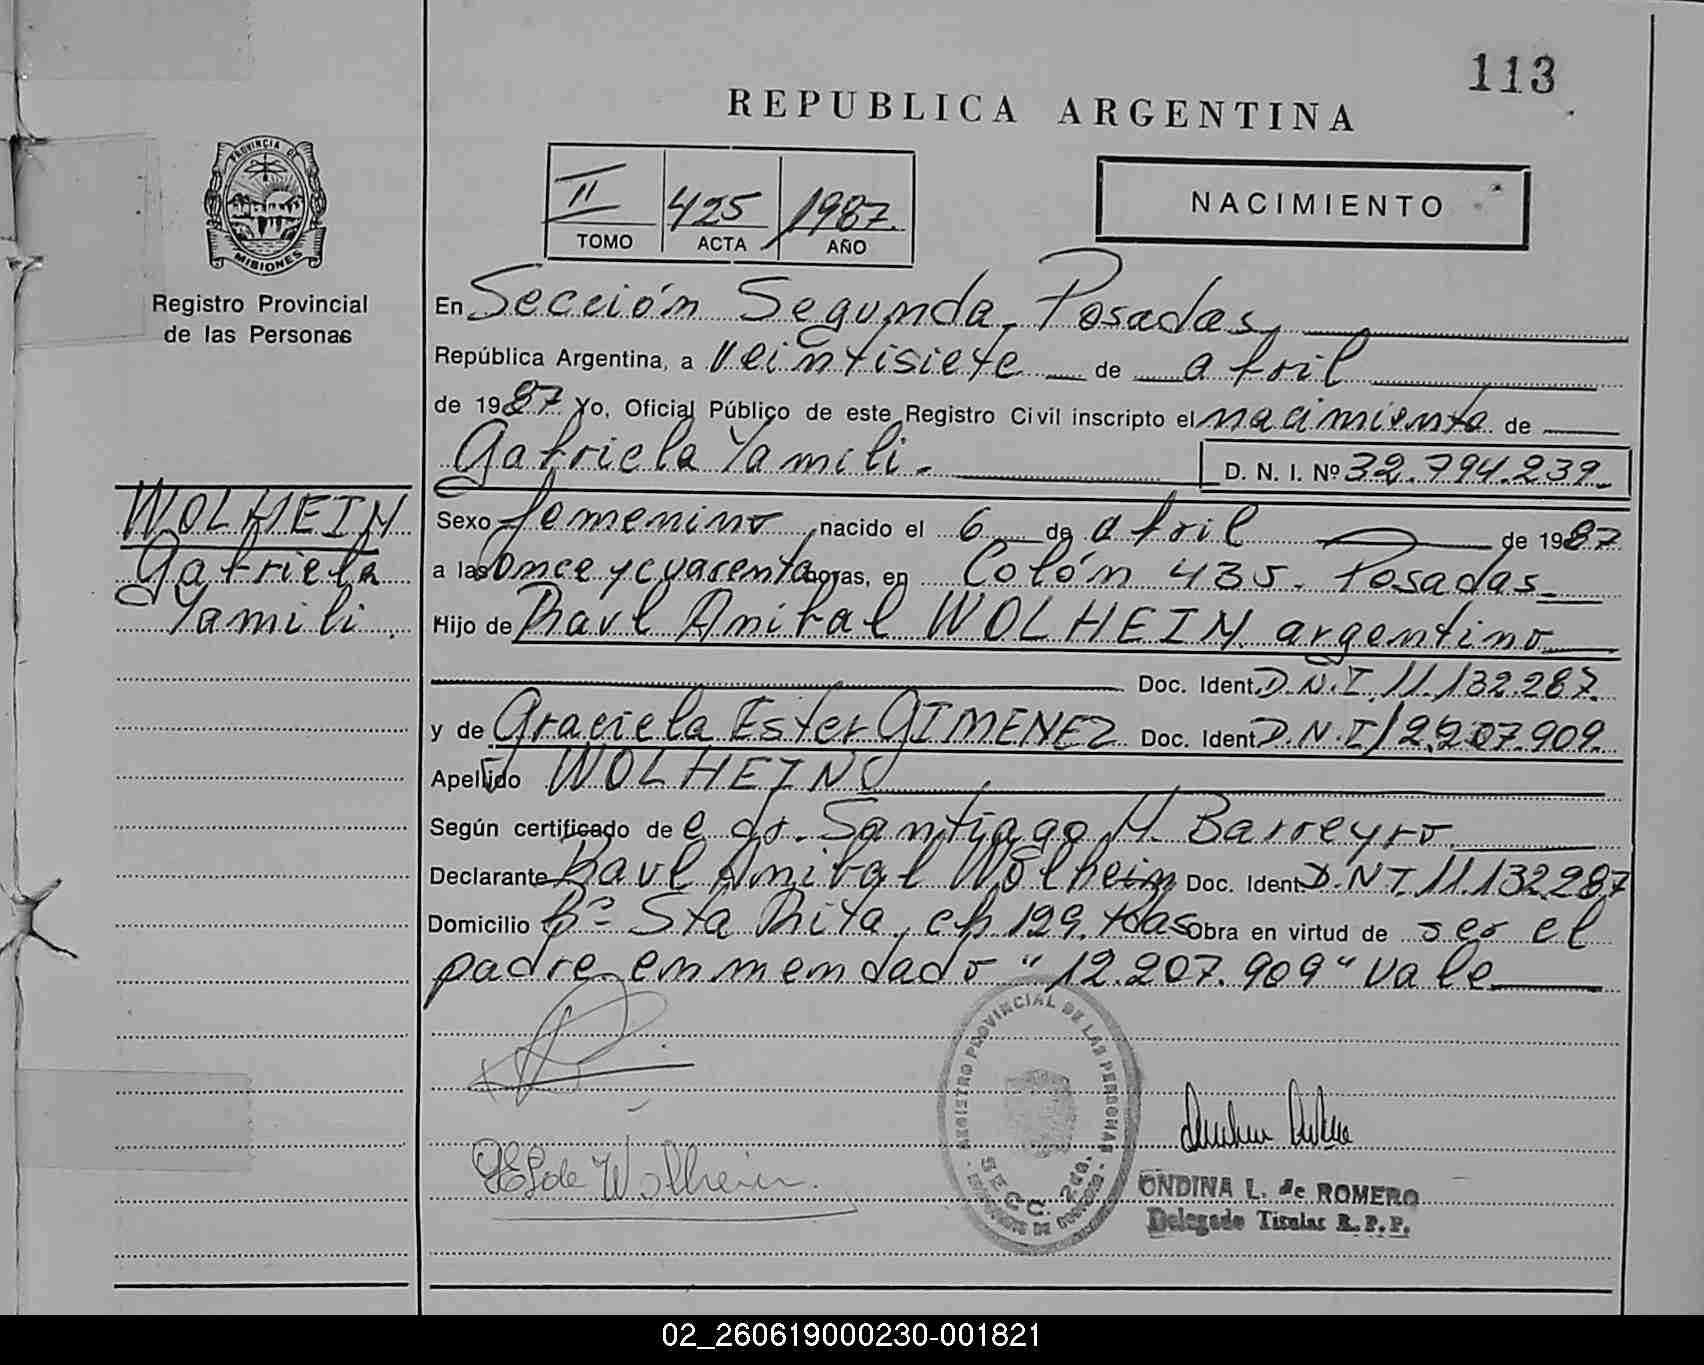 113
REPUBLICA ARGENTINA
PROVINCIA DE
MISIONES
Registro Provincial
de las Personas
II 425 1987.
TOMO ACTA AÑO
NACIMIENTO
En Sección Segunda, Posadas,
República Argentina, a veintisiete de abril
de 1987 Yo, Oficial Público de este Registro Civil inscripto el nacimiento de
Gabriela Yamili.-
D. N. I. Nº 32.794.239.-
WOLHEIN
Gabriela
Yamili.
Sexo femenino nacido el 6 de abril de 1987
a las once y cuarenta horas, en Colón 435. Posadas
Hijo de Raul Anibal WOLHEIN argentino
Doc. Ident. D.N.I. 11.132.287.
y de Graciela Ester GIMENEZ Doc. Ident. D.N.I 12.207.909.
Apellido WOLHEIN
Según certificado de e dr. Santiago M. Barreyro
Declarante Raul Anibal Wolhein Doc. Ident. D.N.I. 11.132.287
Domicilio Bº Sta Rita, ch 129. Pdas Obra en virtud de ser el
padre enmendado "12.207.909" vale
de Wolhein.
REGISTRO PROVINCIAL DE LAS PERSONAS
SECC. 2da.
ONDINA L. de ROMERO
Delegado Titular R.P.P.
02_260619000230-001821